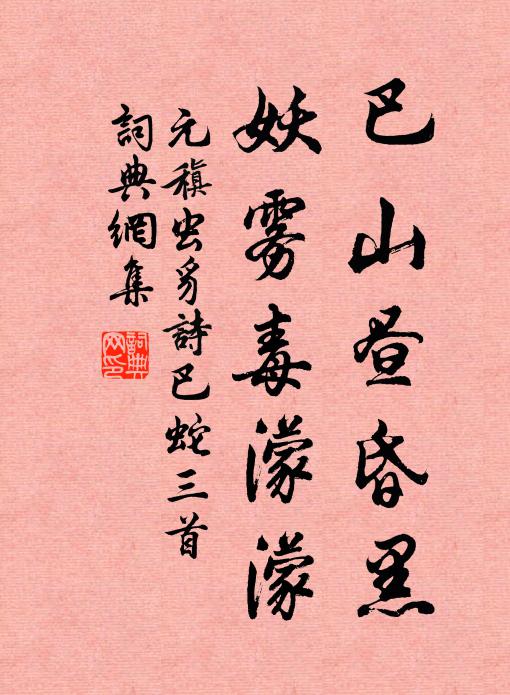 巴山昼昏黑
妖雾毒濛濛
元稹虫豸詩巴蛇三首
詞典網集
詞典网印